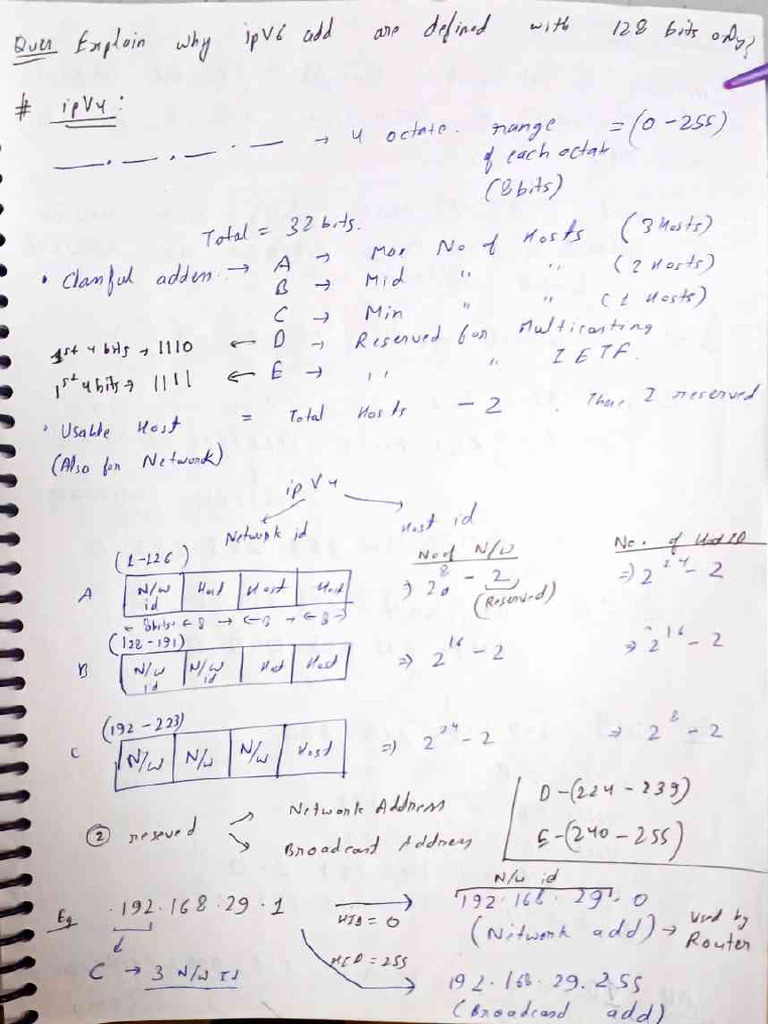 Ques Explain why ipV6 add are defined with 128 bits only?
# ipV4:
__.__.__.__ → 4 octate. range of each octate = (0-255)
(8bits)
Total = 32 bits.
• Classful addess → A → Max No of Hosts (3 Hosts)
B → Mid " " (2 Hosts)
C → Min " " (1 Hosts)
1st 4 bits → 1110 ← D → Reserved for Multicasting
1st 4 bits → 1111 ← E → " " IETF.
• Usable Host = Total Hosts - 2 . 2 reserved
(Also for Network)
ipV4
Network id Host id
No of N/W No. of Host ID
(1-126)
A N/W id Host Host Host ⇒ 2^8 - 2 (Reserved) ⇒ 2^24 - 2
← 8bits → ← 8 → ← 8 → ← 8 →
(128-191)
B N/W id N/W id Host Host ⇒ 2^16 - 2 ⇒ 2^16 - 2
(192-223)
C N/W N/W N/W Host ⇒ 2^24 - 2 ⇒ 2^8 - 2
② reseved → Network Address
→ Broadcast Address
D-(224-239)
E-(240-255)
N/W id
Eg 192.168.29.1 → HID=0 192.168.29.0
(Network add) → Used by Router
C → 3 N/W ID
HID=255 → 192.168.29.255
(Broadcast add)